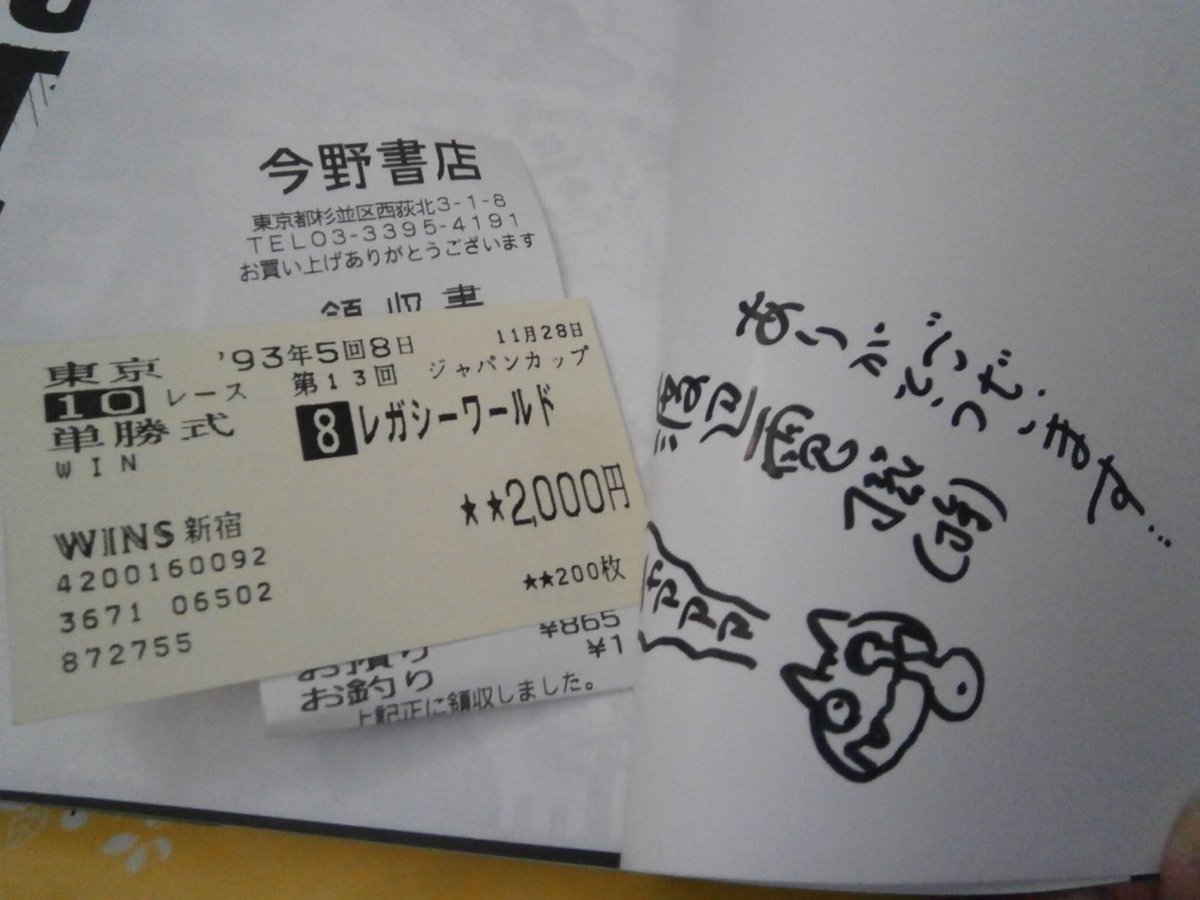 今野書店
東京都杉並区西荻北3-1-8
TEL03-3395-4191
お買い上げありがとうございます
領収書
東京 '93年5回8日 11月28日
10レース 第13回 ジャパンカップ
単勝式 8 レガシーワールド
WIN
★★2,000円
WINS新宿
4200160092 ★★200枚
3671 06502
872755
¥865
お預り ¥1
お釣り
上記正に領収しました。
ありがとうございます…